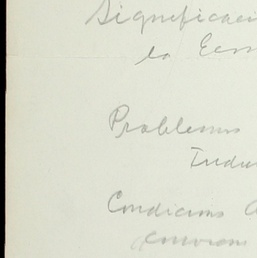 Significaci
la Econ
Problemas
Indu
Condicions